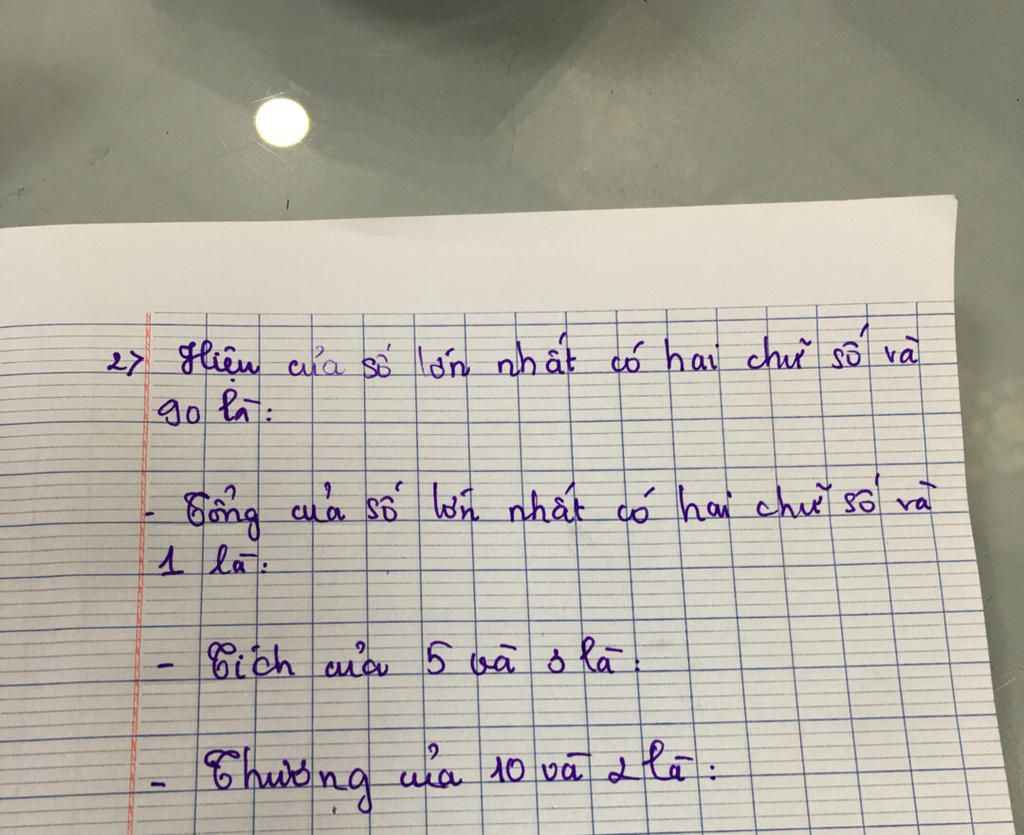 2> Hiệu của số lớn nhất có hai chữ số và
90 là:
- Tổng của số lớn nhất có hai chữ số và
1 là:
- Tích của 5 và là:
- Thương của 10 và 2 là: